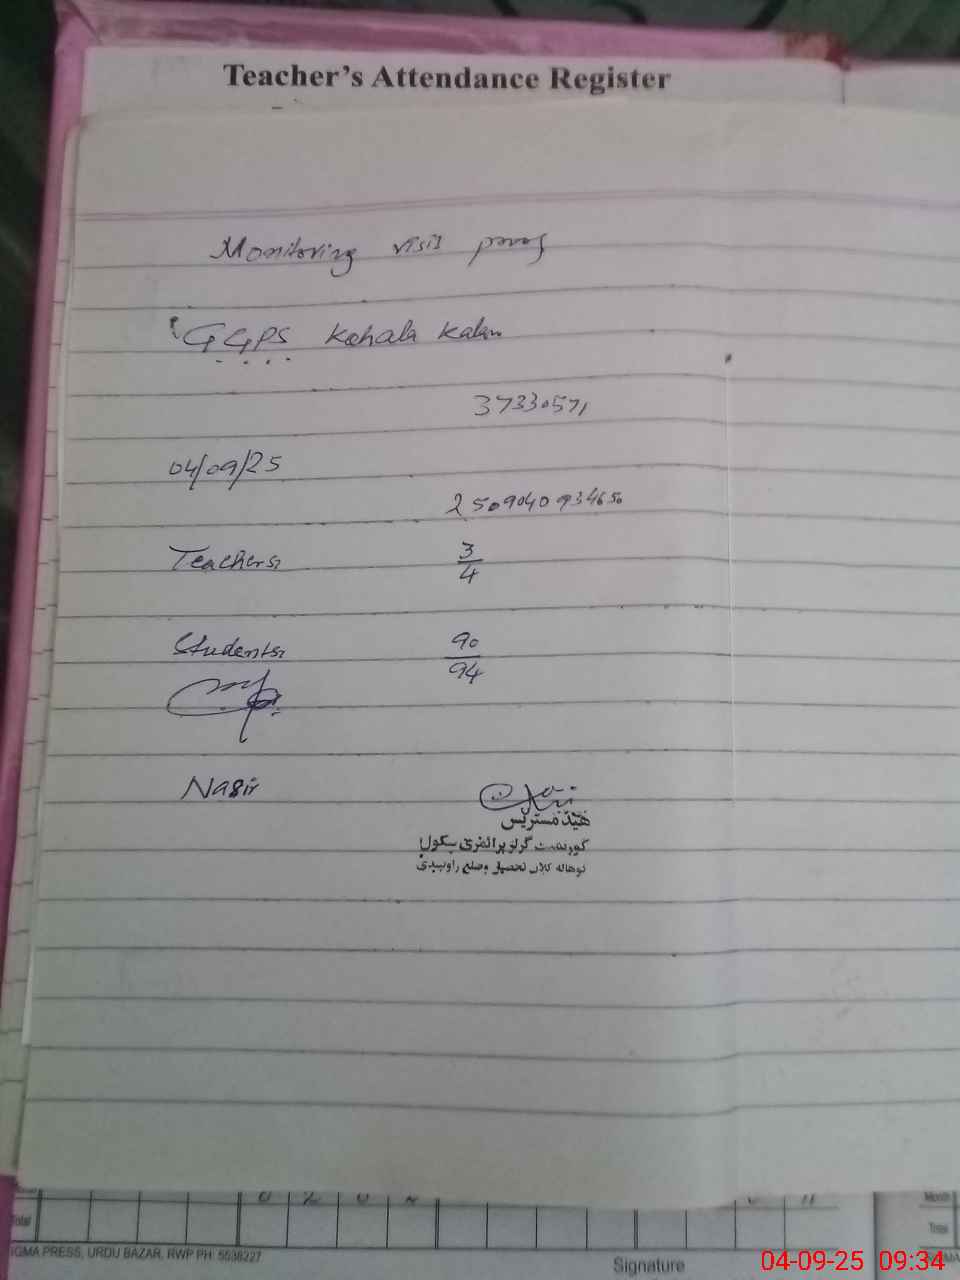 Teacher's Attendance Register
Monitoring visit proof
GGPS Kohala Kalan
37330571
04/09/25
250904093465
Teachers:
3/4
Students:
90/94
Nasir
ھیڈ مسٹریس
گورنمنٹ گرلز پرائمری سکول
کوھالہ کلاں تحصیل وضلع راولپنڈی
Total
Month
Total
SIGMA PRESS, URDU BAZAR, RWP PH: 5538227
Signature
04-09-25 09:34